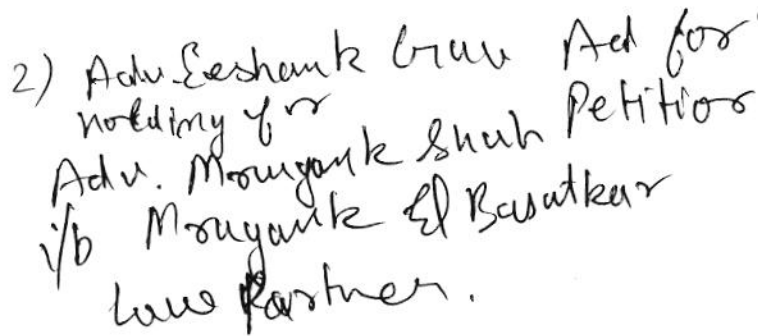 2) Adv. Eeshank Grau Ad for
holding for
Adv. Mrugank Shah Petitior
i/b Mrugank El Basutkar
Law Partner.